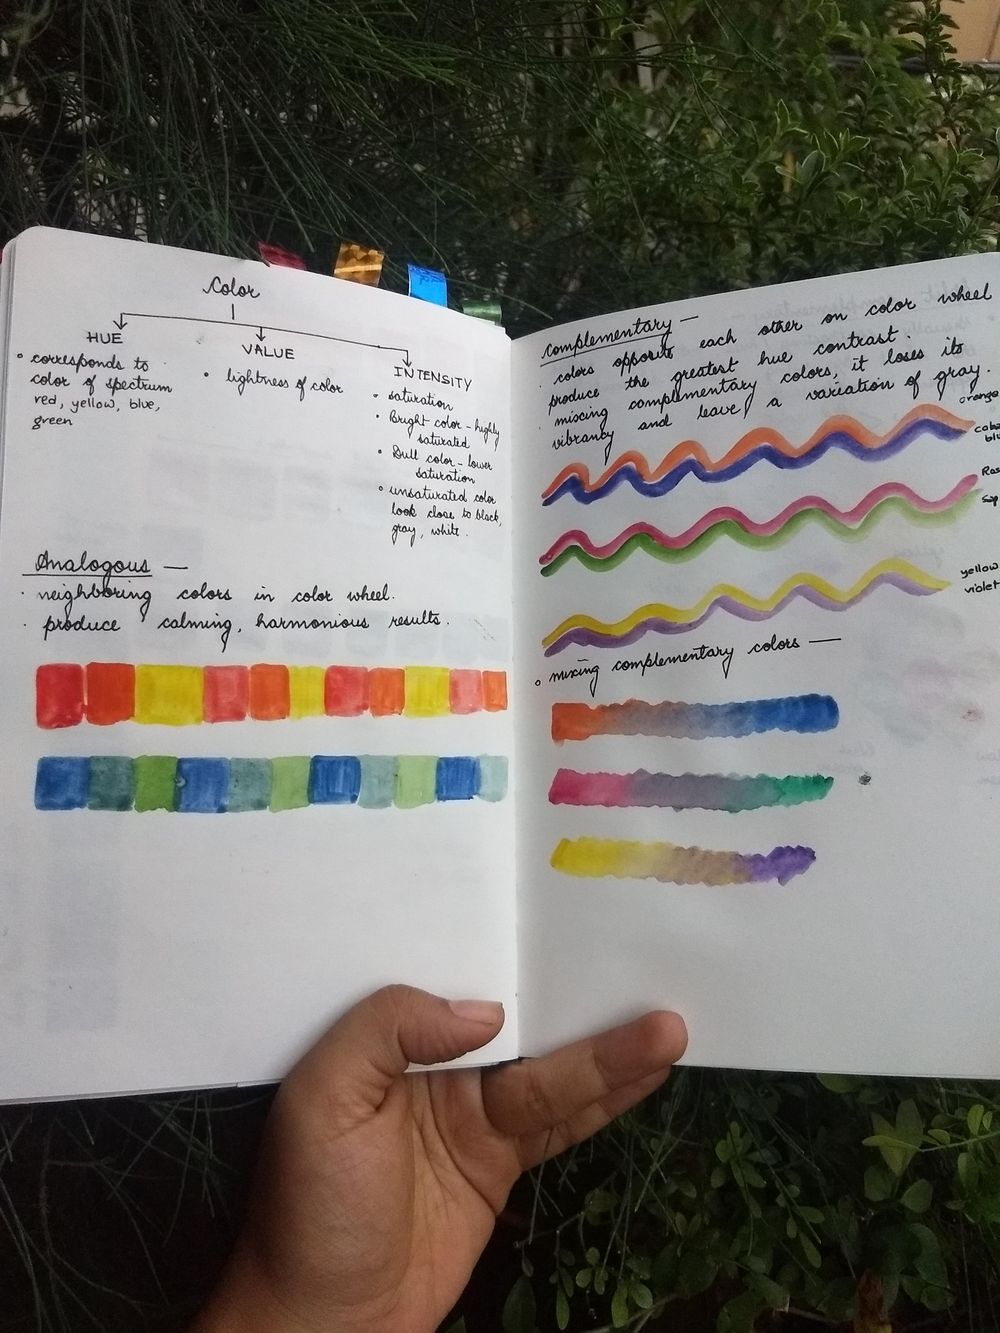 Color
HUE
• corresponds to
color of spectrum
red, yellow, blue,
green
VALUE
• lightness of color
INTENSITY
• saturation
• Bright color - highly
saturated
• Dull color - lower
saturation
• unsaturated color
look close to black,
gray, white.
Analogous —
· neighboring colors in color wheel.
· produce calming, harmonious results.
Complementary —
· colors opposite each other on color wheel
produce the greatest hue contrast.
· mixing complementary colors, it loses its
vibrancy and leave a variation of gray.
orange
yellow
violet
• mixing complementary colors —